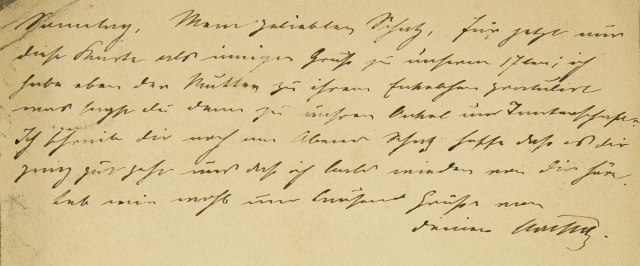 Sonntag, Mein geliebter Schatz, Für jetzt nur
diese Karte als innigen Gruß zu unserem 17ten; ich
habe eben der Mutter zu ihrem Enkelchen gratuliert
was sagst du denn zu unsrer Onkel und Tantenschaft.
Ich schreibe dir noch am Abend Schatz hoffe daß es dir
ganz gut geht und daß ich bald wieder von dir höre.
Leb mir wohl und tausend Grüße von
deinem